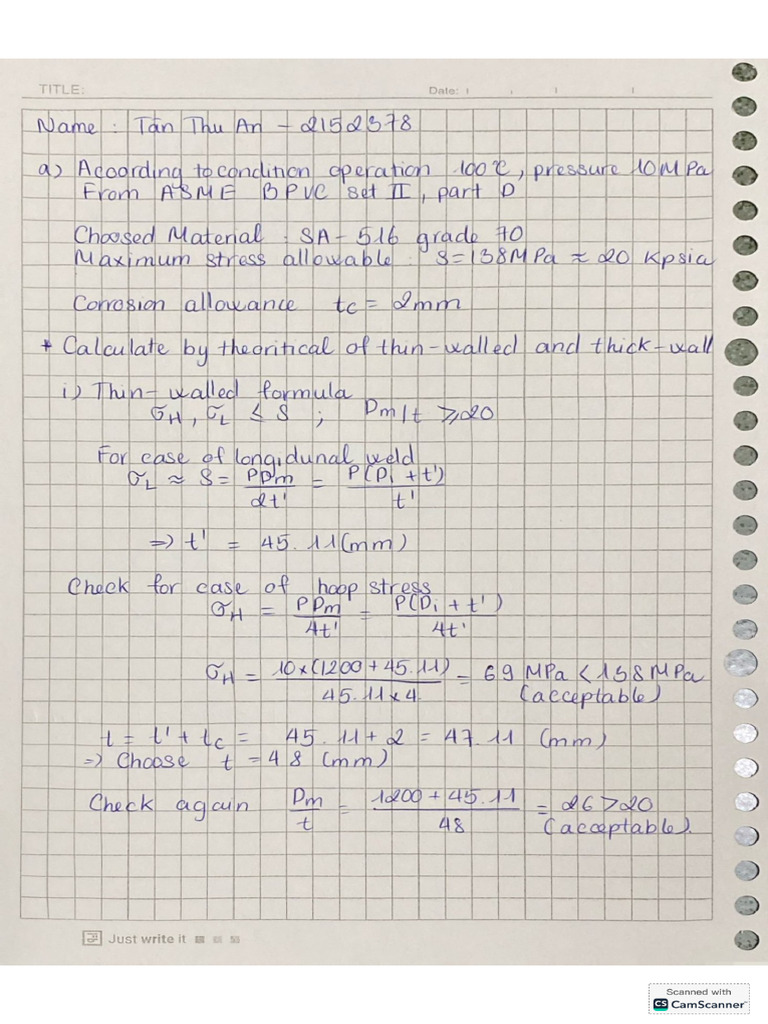 TITLE:
Date:
Name : Tán Thu An - 2152378
a) According to condition operation 100°C, pressure 10MPa
From ASME BPVC set II, part D
Choosed Material : SA-516 grade 70
Maximum stress allowable : S=138MPa ≈ 20 Kpsia
Corrosion allowance tc = 2mm
* Calculate by theoritical of thin-walled and thick-wall
i) Thin-walled formula
σH, σL ≤ S ; Dm/t ≥ 20
For case of longidunal weld
σL ≈ S = PDm/2t' = P(Di + t')/t'
=> t' = 45.11(mm)
Check for case of hoop stress
σH = PDm/4t' = P(Di + t')/4t'
σH = 10×(1200 + 45.11)/45.11×4 = 69 MPa < 138MPa
(acceptable)
t = t' + tc = 45.11 + 2 = 47.11 (mm)
=> Choose t = 48 (mm)
Check again Dm/t = 1200 + 45.11/48 = 26 > 20
(acceptable).
Just write it
Scanned with
CS CamScanner